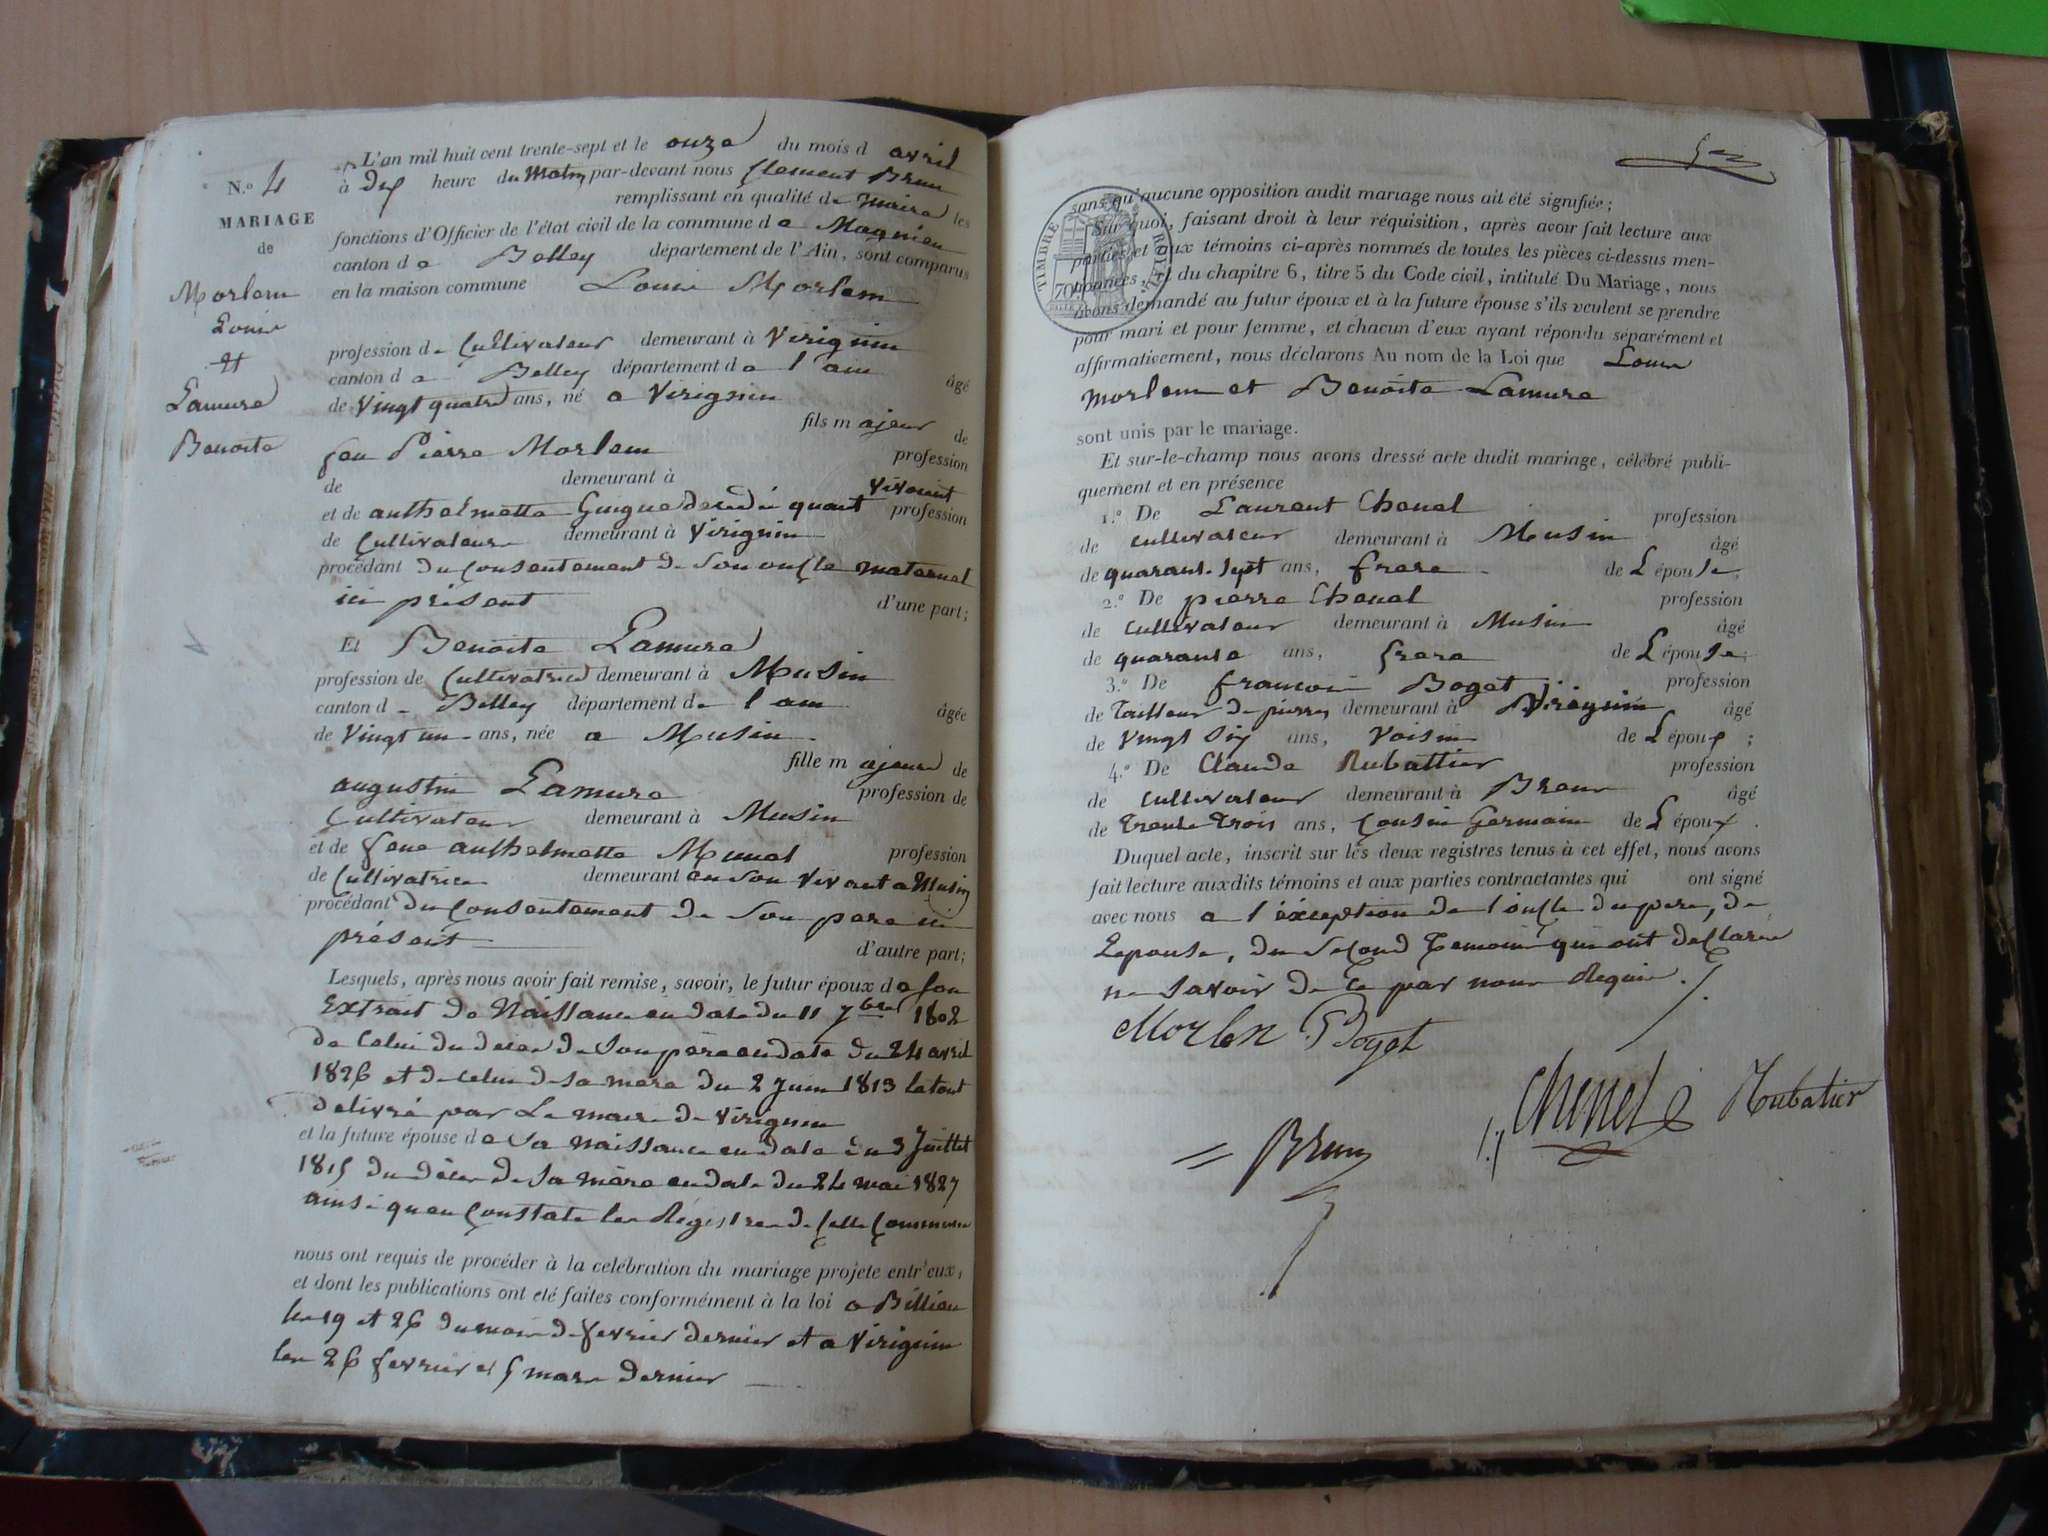 N.º 4
MARIAGE
de
Morlem
Louis
et
Lamure
Benoite
L'an mil huit cent trente-sept et le onze du mois d avril
à dix heure du Matin par-devant nous Clement Brun
remplissant en qualité de Maire les
fonctions d'Officier de l'état civil de la commune d e Magnieu
canton d e Belley département de l'Ain, sont comparus
en la maison commune Louis Morlem
profession de Cultivateur demeurant à Virignin
canton d e Belley département de l'ain âgé
de Vingt quatre ans, né a Virignin
fils majeur de
feu Pierre Morlem profession
de demeurant à
et de anthelmette vivant profession
de Cultivateurs demeurant à Virignin
procédant du Consentement de son oncle maternel
ici présent d'une part;
Et Benoite Lamure
profession de Cultivatrice demeurant à Musin
canton d e Belley département de l'ain âgée
de Vingt un ans, née a Musin
fille majeure de
augustin Lamure profession de
Cultivateur demeurant à Musin
et de feue anthelmette profession
de Cultivatrice demeurant en son vivant a Musin
procédant du Consentement de Son pere ici
présent d'autre part;
Lesquels, après nous avoir fait remise, savoir, le futur époux d e son
Extrait de Naissance en date du 11 7bre 1802
de Celui du deces de son père en date du 24 avril
1826 et de celui de sa mere du 2 juin 1813 le tout
delivré par Le maire de Virignin
et la future épouse d e sa Naissance en date du 3 Juillet
1815 du déces de sa mère en date du 24 mai 1827
ainsi qu'en Constate les Régistres de Cette Commune
nous ont requis de procéder à la celébration du mariage projeté entr'eux,
et dont les publications ont été faites conformément à la loi a Billieu
les 19 et 26 du mois de fevrier dernier et a Virignin
les 26 fevrier et 5 mars dernier
TIMBRE ROYAL
70
sans qu'aucune opposition audit mariage nous ait été signifiée;
Sur quoi, faisant droit à leur réquisition, après avoir fait lecture aux
parties et aux témoins ci-après nommés de toutes les pièces ci-dessus men-
tionnées, et du chapitre 6, titre 5 du Code civil, intitulé Du Mariage, nous
avons demandé au futur époux et à la future épouse s'ils veulent se prendre
pour mari et pour femme, et chacun d'eux ayant répondu séparément et
affirmativement, nous déclarons Au nom de la Loi que Louis
Morlem et Benoite Lamure
sont unis par le mariage.
Et sur-le-champ nous avons dressé acte dudit mariage, célébré publi-
quement et en présence
1.º De Laurent Chenel profession
de cultivateur demeurant à Musin âgé
de quarant-sept ans, frere de L'épouse,
2.º De pierre Chenel profession
de Cultivateur demeurant à Musin âgé
de quarante ans, frere de L'épouse;
3.º De francois Boget profession
de Tailleur de pierres demeurant à Virignin âgé
de Vingt Six ans, Voisin de L'époux;
4.º De Claude Rubattier profession
de cultivateur demeurant à Brens âgé
de Trente Trois ans, Cousin Germain de L'époux.
Duquel acte, inscrit sur les deux registres tenus à cet effet, nous avons
fait lecture auxdits témoins et aux parties contractantes qui ont signé
avec nous a l'éxception de l'oncle du pere, de
Lepouse, du second Temoin qui ont declaré
ne savoir de Ce par nous Requis.
Morlen Boget
Chenel Rubatier
Brun